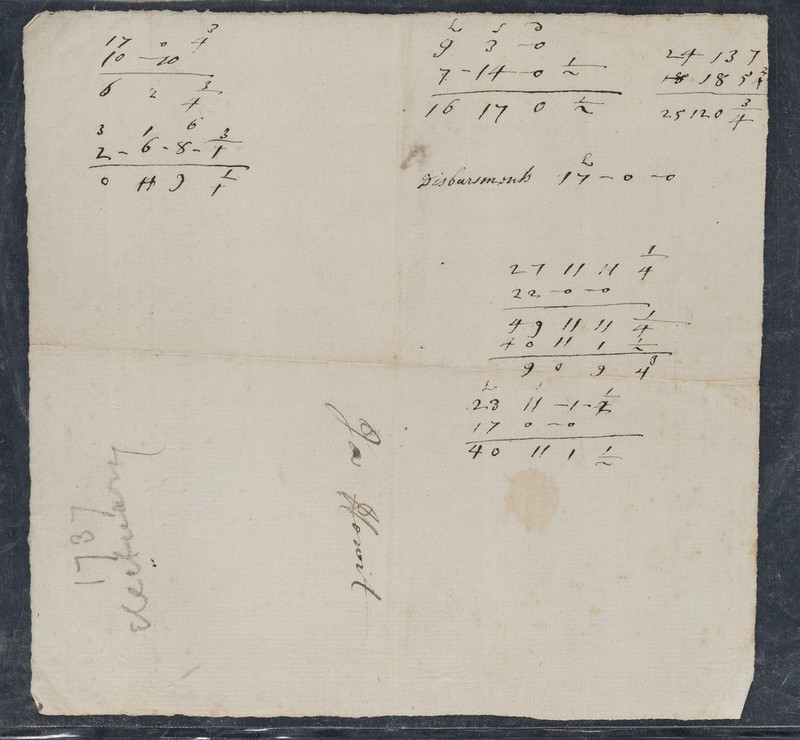 17 0 3/4
10 - 10
6 2 3/4
3 1 6
2 - 6 - 8 - 3/4
0 11 9 1/4
L S D
9 3 - 0
7 - 14 - 0 1/2
16 17 0 1/2
24 13 7
18 18 5
25 12 0 3/4
L
Disbursments 17 - 0 - 0
27 11 11 1/4
22 - 0 - 0
49 11 11 1/4
40 11 1 1/2
9 0 9 3/4
L
23 11 - 1 - 1/2
17 0 - 0
40 11 1 1/2
Ja Howit
1737
Electuary